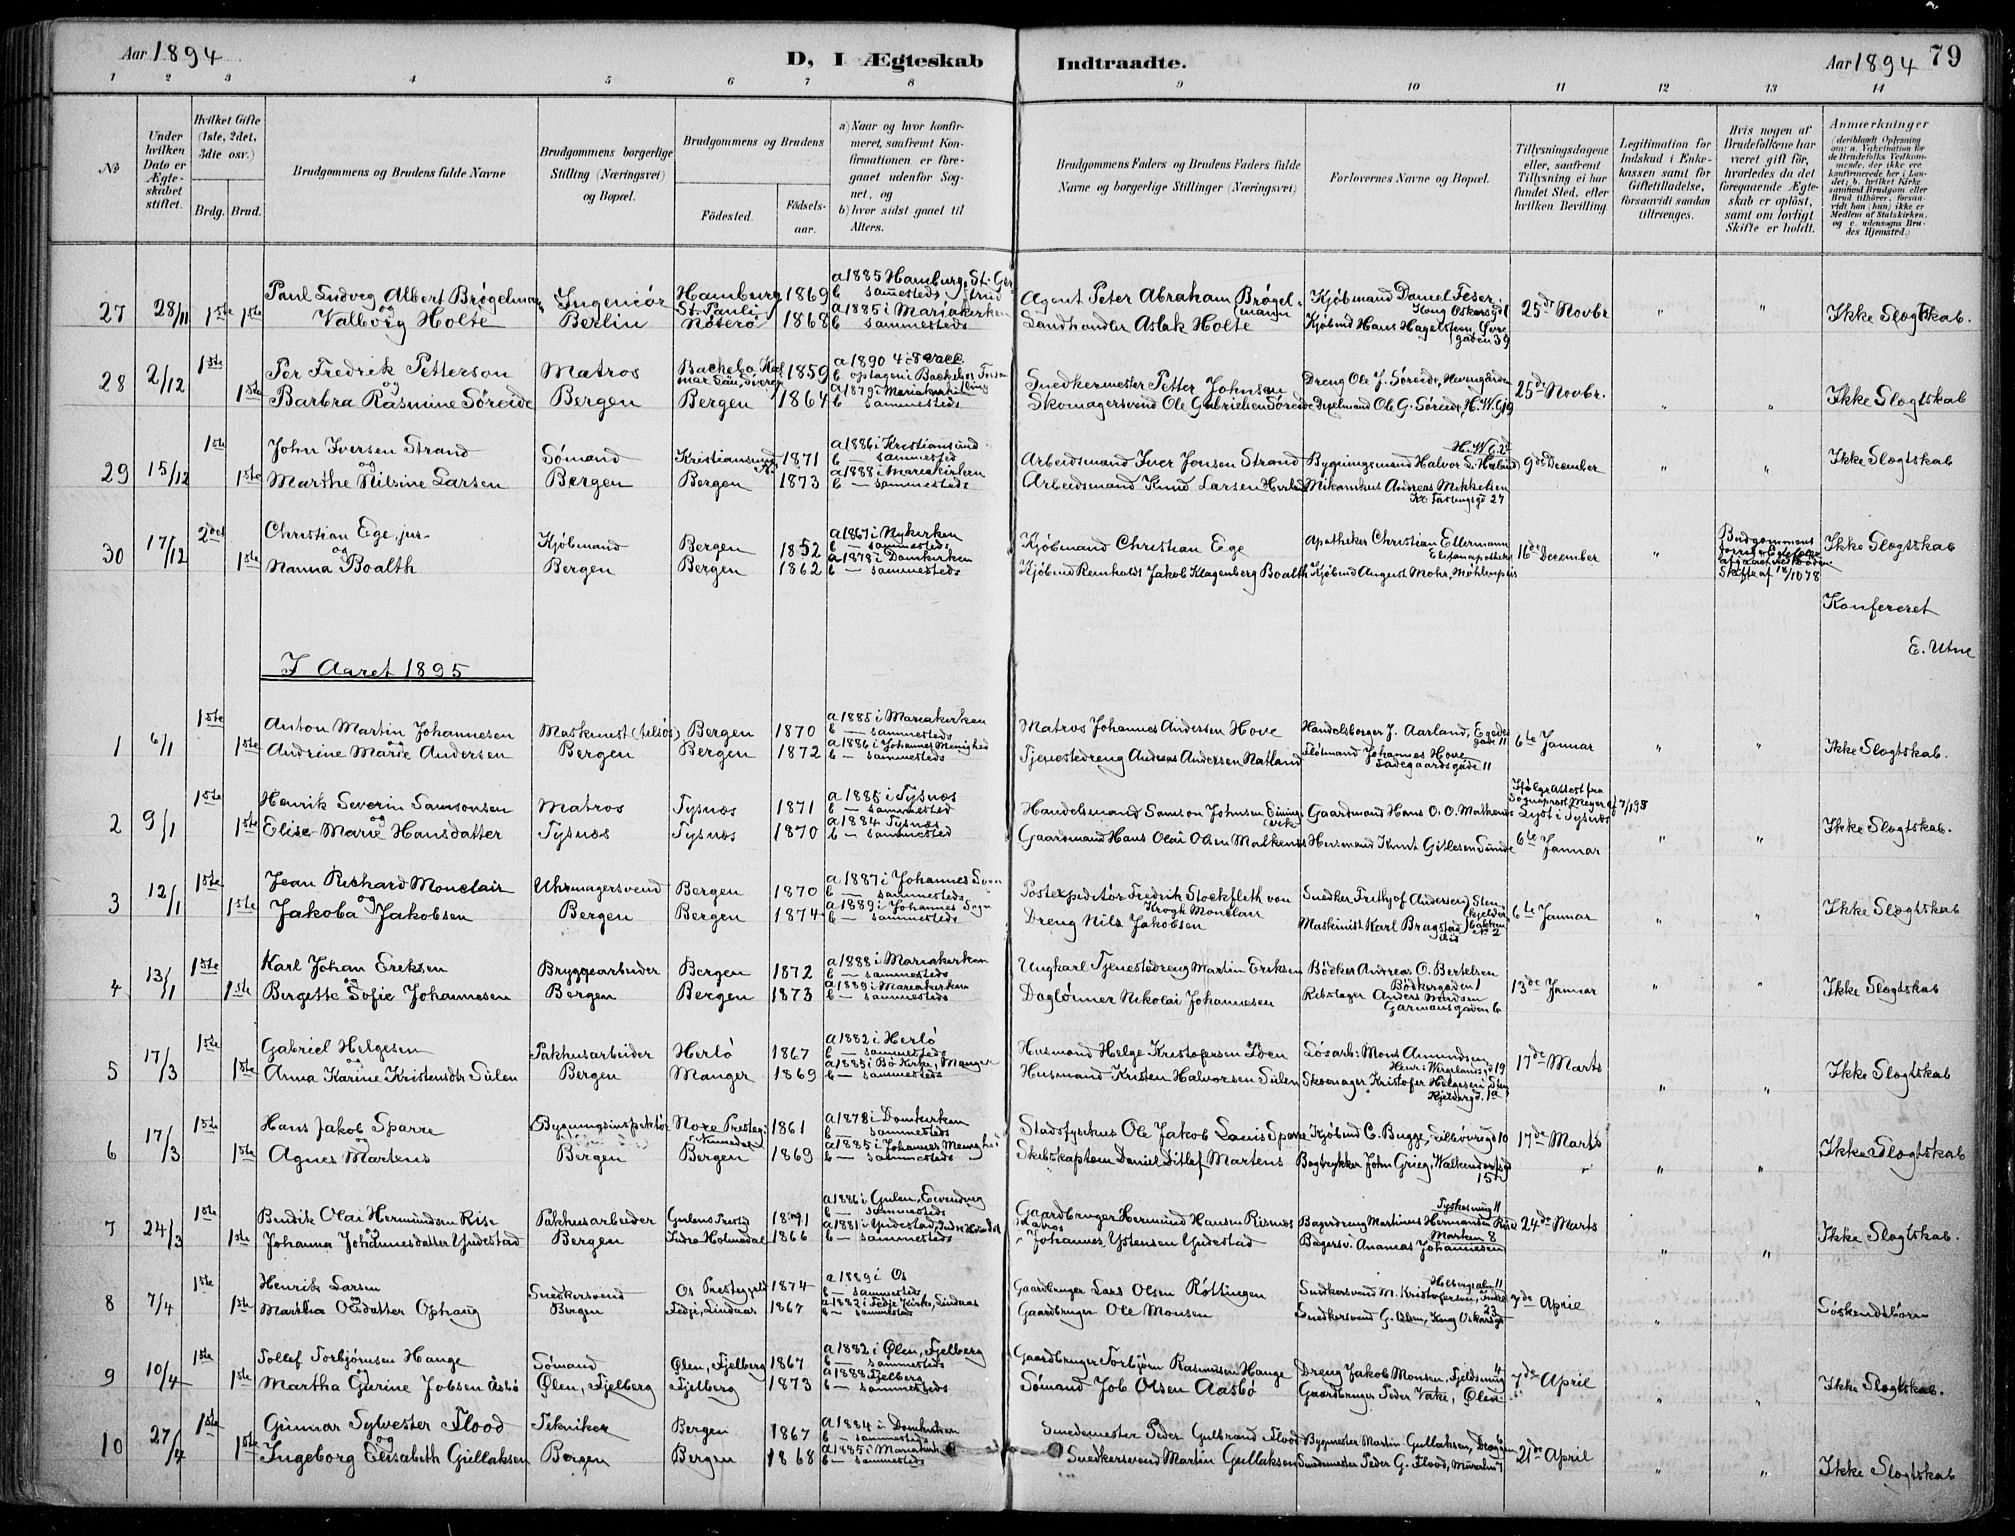 Aar 1894
D, I Ægteskab Indtraadte.
Aar 1894 79
1 2 3 4 5 6 7 8 9 10 11 12 13 14
No
Under hvilken Dato er Ægteskabet stiftet.
Hvilket Gifte (1ste, 2det, 3die osv.)
Brdg. Brud.
Brudgommens og Brudens fulde Navne
Brudgommens borgerlige Stilling (Næringsvei) og Bopæl.
Brudgommens og Brudens
Fødested.
Fødselsaar.
a) Naar og hvor konfirmeret, saafremt Konfirmationen er foregaaet udenfor Sognet, og
b) hvor sidst gaaet til Alters.
Brudgommens Faders og Brudens Faders fulde Navne og borgerlige Stillinger (Næringsvei)
Forlovernes Navne og Bopæl.
Tillysningsdagene eller, saafremt Tillysning ei har fundet Sted, efter hvilken Bevilling
Legitimation for Indskud i Enkekassen samt for Giftetilladelse, forsaavidt saadan tiltrænges.
Hvis nogen af Brudefolkene har været gift før, hvorledes da det foregaaende Ægteskab er opløst, samt om lovligt Skifte er holdt.
Anmærkninger
27 28/11 1ste 1ste
Paul Ludvig Albert Brøgelmann
og
Valborg Holte
Ingeniør
Berlin
Hamburg St. Pauli 1869
Nøterø 1868
a 1885 Hamburg, St. Gertrud
b sammesteds
a 1885 i Mariakirken
b sammesteds
Agent Peter Abraham Brøgelmann
Landhandler Aslak Holte
Kjøbmand Daniel Feser
Kong Oskarsgd 1
Kjøbmd Hans Hagelsteen, Øvregaden 39
25de Novbr
Ikke Slægtskab.
28 2/12 1ste 1ste
Per Fredrik Petterson
og
Barbra Rasmine Søreide
Matros
Bergen
1859
Bergen 1864
a 1879 i Mariakirken
b sammesteds
Snedkermester Petter Johnson
Skomagersvend Ole Gabrielsen Søreide
Dreng Ole J. Søreide,
Ole G. Søreide, H. W. G 19
25de Novbr.
Ikke Slægtskab
29 15/12 1ste 1ste
John Iversen Strand
og
Marthe Nilsine Larsen
Sømand
Bergen
Kristiansund N. 1871
Bergen 1873
a 1886 i Kristiansund
b sammested
a 1888 i Mariakirken
b — sammesteds
Arbeidsmand Iver Jonson Strand
Arbeidsmand Knud Larsen
Andreas Mikkelsen
9de December
Ikke Slægtskab
30 17/12 2det 1ste
Christian Ege, jur.
og
Nanna Boalth
Kjøbmand
Bergen
Bergen 1852
Bergen 1862
a 1867 i Nykirken
b — sammesteds
a 1878 i Domkirken
b — sammesteds
Kjøbmand Christian Ege
Kjøbmd Reinholdt Jakob Klagenberg Boalth
Apotheker Christian Ellermann
Kjøbmd August Mohr, Møhlenpris
16de December
Brudgommens
Skifte af 18/10 78
Ikke Slægtskab
Konfereret
E. Utne
I Aaret 1895
1 6/1 1ste 1ste
Anton Martin Johannesen
og
Andrine Marie Andersen
Maskinist (tilsøs)
Bergen
Bergen 1870
Bergen 1872
a 1885 i Mariakirken
b — sammesteds
a 1886 i Johannes Menighed
b — sammesteds
Matros Johannes Andersen Hove
Tjenestedreng Andreas Andersen Natland
Handelsborger J. Aarland, Egedesgade 11
Johannes Hove
Ladegaardsgade 11
6te Januar
Ikke Slægtskab.
2 9/1 1ste 1ste
Henrik Severin Samsonsen
og
Elise Marie Hansdatter
Matros
Tysnæs
Tysnæs 1871
Tysnæs 1870
a 1885 i Tysnæs
b — sammesteds
a 1884 Tysnæs
b — sammested
Handelsmand Samson Johnsen
Gaardmand Hans Olai Olsen Malkenes
Gaardmand Hans O. O. Malkenes
Husmand Knut Gitlesen Sunde
Ifølge Attest fra
Sogneprest Meyer af 7/1 95
Lyst i Tysnæs
6te Januar
Ikke Slægtskab.
3 12/1 1ste 1ste
Jean Richard Monclair
og
Jakoba Jakobsen
Uhrmagersvend
Bergen
Bergen 1870
Bergen 1874
a 1887 i Johannes Sogn
b — sammesteds
a 1889 i Johannes Sogn
b — sammesteds
Postexpeditør Fredrik Stockfleth von Krogh Monclair
Dreng Nils Jakobsen
Snedker Frithjof Andersen
Maskinist Karl Brugstad
6te Januar
Ikke Slægtskab
4 13/1 1ste 1ste
Karl Johan Eriksen
og
Bergitte Sofie Johannesen
Bryggearbeider
Bergen
Bergen 1872
Bergen 1873
a 1888 i Mariakirken
b — sammesteds
a 1889 i Mariakirken
b — sammesteds
Ungkarl Tjenestedreng Martin Eriksen
Daglønner Nikolai Johannesen
Bødker Andreas O. Bertelsen
Bødkergaden 1
Rebslager Anders Madsen
Garmansgaden 6
13de Januar
Ikke Slægtskab
5 17/3 1ste 1ste
Gabriel Helgesen
og
Anna Karine Kristensdtr Sulen
Pakhusarbeider
Bergen
Herlø 1867
Manger 1869
a 1882 i Herlø
b — sammesteds
a 1885 i Bø Kirke, Manger
b — sammesteds
Husmand Helge Kristofersen
Husmand Kristen Halvorsen Sulen
Løsarb: Mons Amundsen
Skomager Kristofer Helgesen
17de Marts
Ikke Slægtskab
6 17/3 1ste 1ste
Hans Jakob Sparre
og
Agnes Martens
Bygningsinspektør
Bergen
Nore Presteg: Nummedal 1861
Bergen 1869
a 1878 i Domkirken
b — sammesteds
a 1885 i Johannes Menighed
b — sammesteds
Stadsfysikus Ole Jakob Louis Sparre
Skibskaptein Daniel Ditlef Martens
Kjøbmd C. Bugge, Lillehøvregd 10
Bogtrykker John Grieg, Walkendorfsgd 15
17de Marts
Ikke Slægtskab
7 24/3 1ste 1ste
Bendik Olai Hermundsen Rise
og
Johanna Johannesdatter Yndestad
Pakhusarbeider
Bergen
Gulens Prestg 1871
Indre Holmedal 1866
a 1886 i Gulen, Eivindvig
b — sammesteds
b — sammesteds
Gaardbruger Hermund Hansen Risnæs
Johannes Ystensen Yndestad
Martinus Hermansen Rise
Bagersv: Ananias Johannesen
24de Marts
Ikke Slægtskab.
8 7/4 1ste 1ste
Henrik Larsen
og
Martha Olsdatter Ophaug
Snedkersvend
Bergen
Os Prestegjeld 1874
Fedje, Lindaas 1867
a 1889 i Os
b — sammesteds
a 1882 i Fedje Kirke, Lindaas
b — sammesteds
Gaardbruger Lars Olsen Røttingen
Gaardbruger Ole Monsen
Holbergsalm 11
Snedkersvend M. Kristofersen,
Snedkersvend G. Olsen, Kong Oskarsgd 23
7de April
Søskendebørn
9 10/4 1ste 1ste
Tollef Torbjørnsen Hauge
og
Martha Gurine Jobsen Aasbø
Sømand
Ølen, Fjelberg
Ølen, Fjelberg 1867
Fjelberg 1873
a 1882 i Ølen, Fjelberg
b — sammesteds
a 1888 Fjelberg
b — sammesteds
Gaardbruger Torbjørn Rasmussen Hauge
Sømand Job Olsen Aasbø
Dreng Jakob Monsen,
Gaardbruger Peder Vake, Ølen
7de April
Ikke Slægtskab.
10 27/4 1ste 1ste
Gunnar Sylvester Flood
og
Ingeborg Elisabeth Gullaksen
Tekniker
Bergen
Bergen 1867
Bergen 1868
a 1884 i Domkirken
b — sammesteds
a 1885 i Mariakirken
b — sammesteds
Smedemester Peder Gulbrand Flood
Snedkersvend Martin Gullaksen
Bygmester Martin Gullaksen,
Smedemester Peder G. Flood, Muralm 7
21de April
Ikke Slægtskab